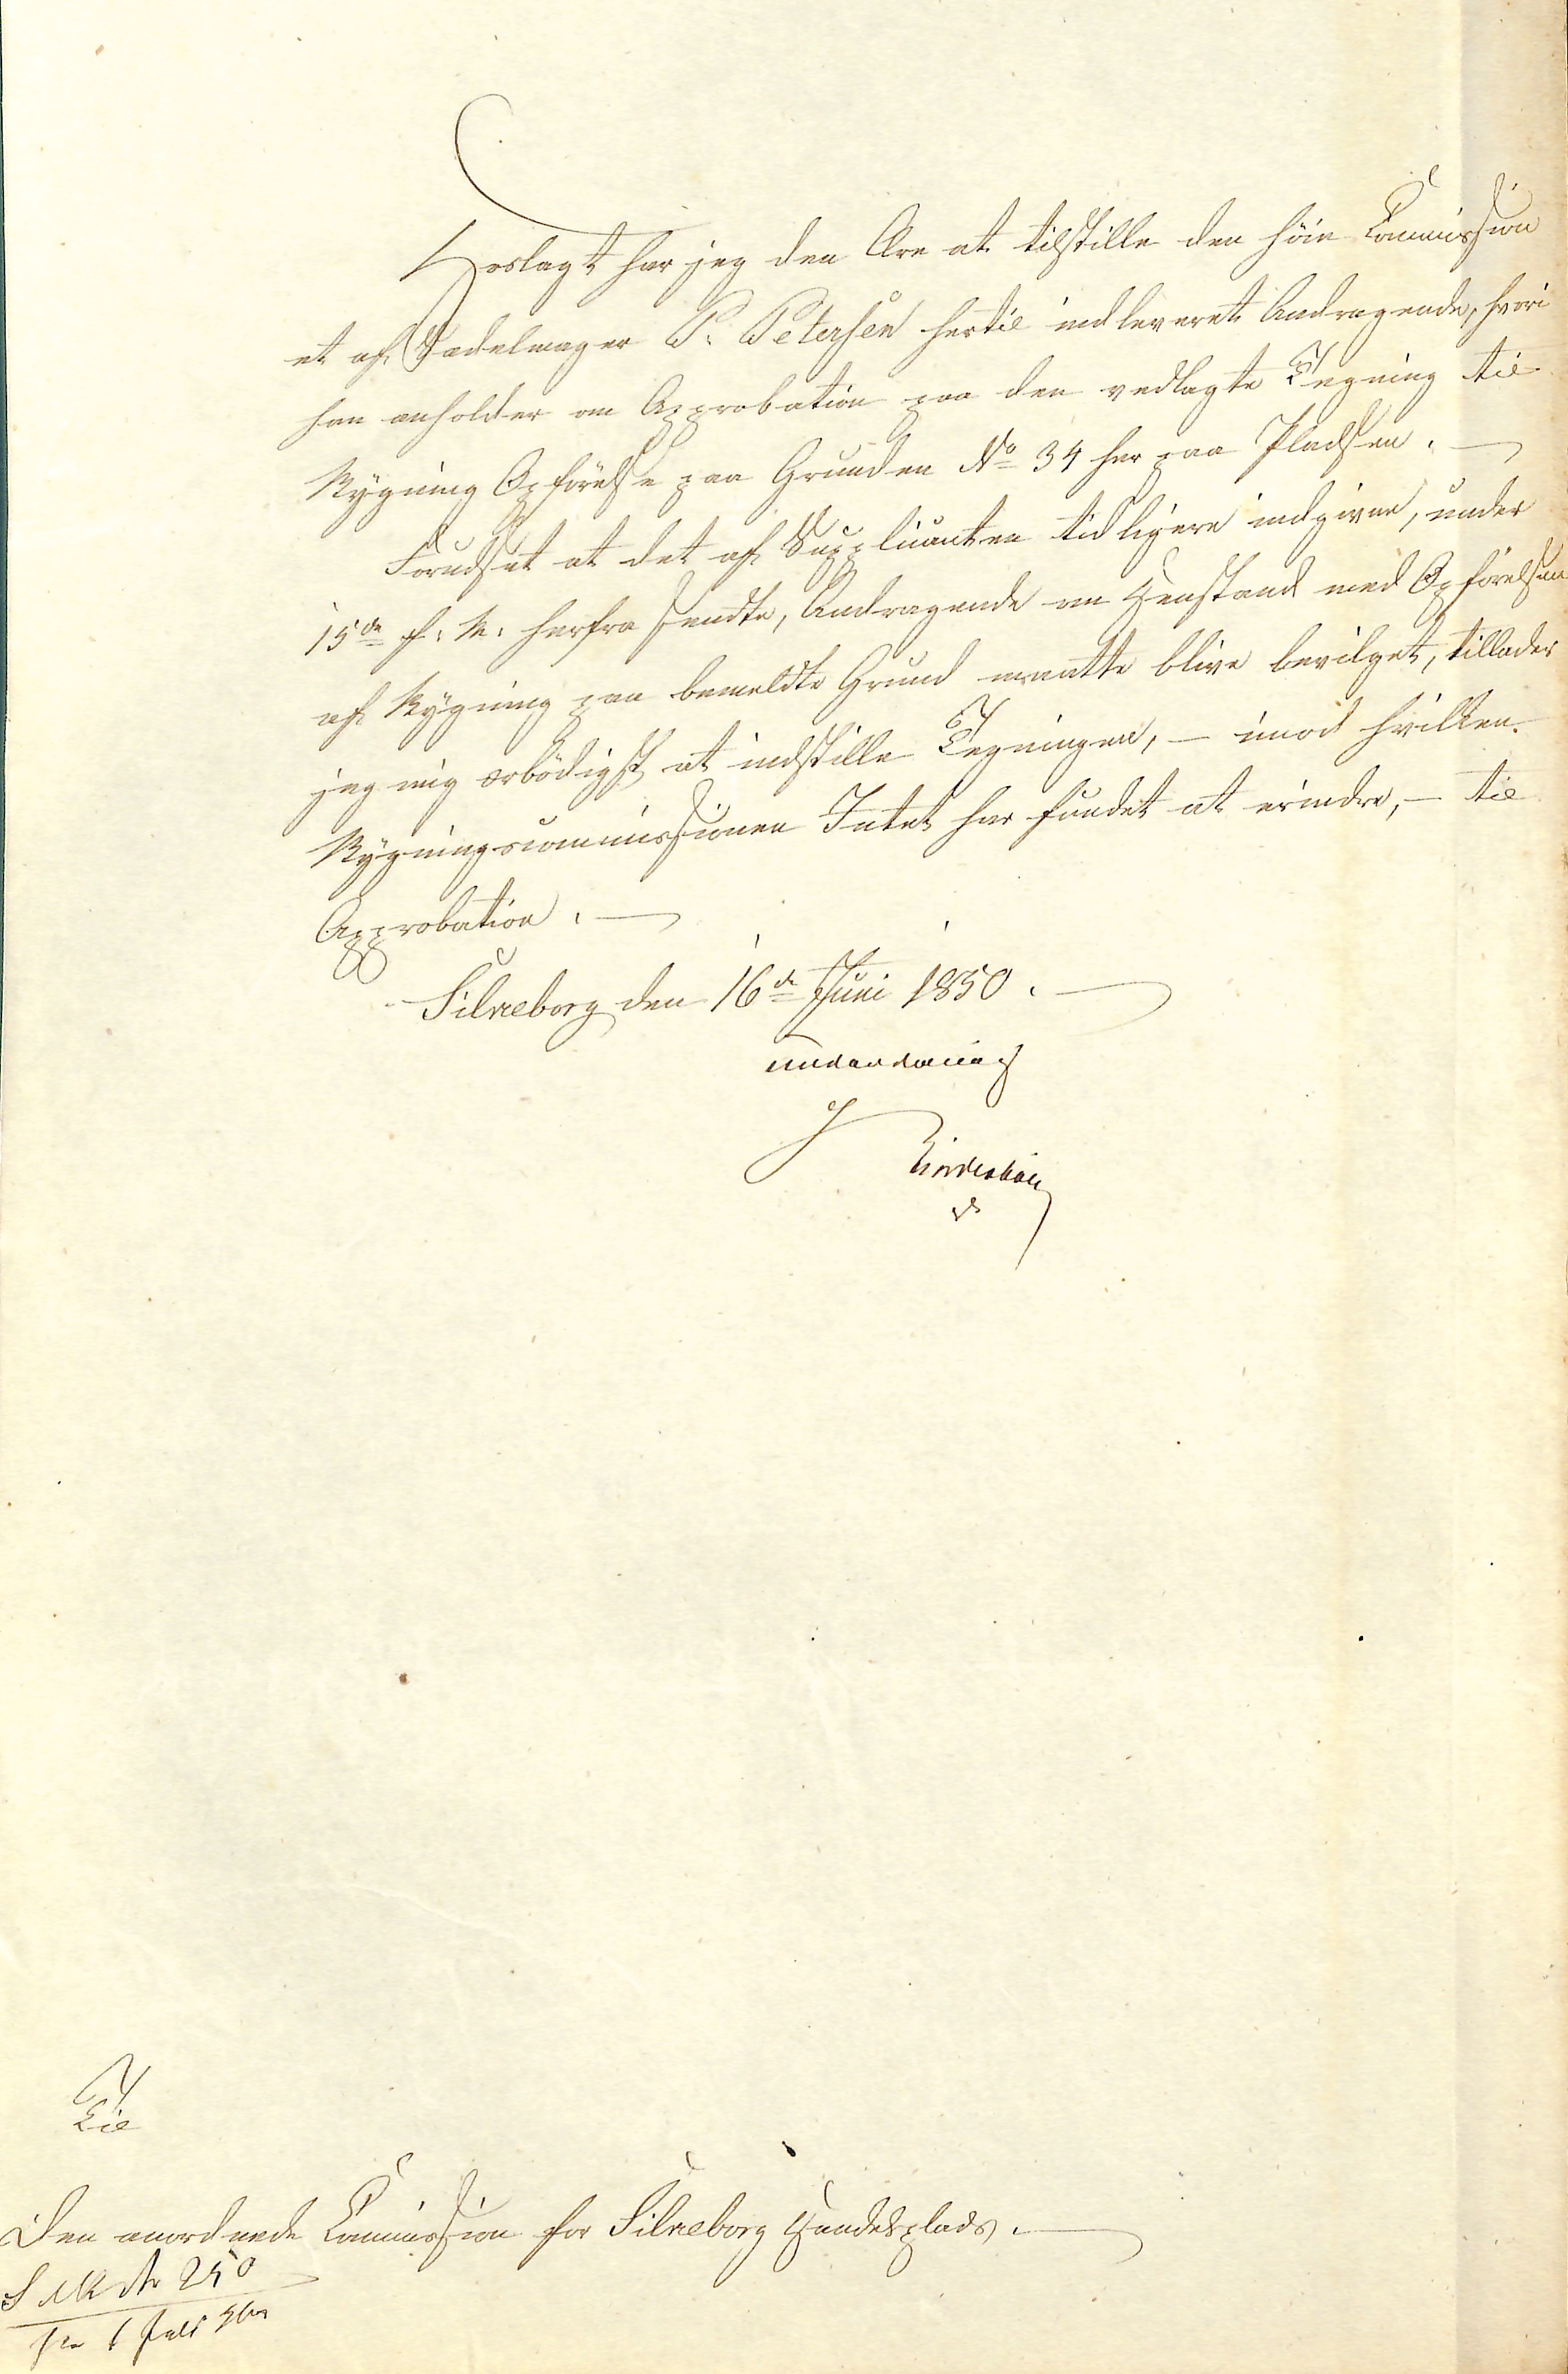 Hoslagt har jeg den Ære at tilstille den höie Commission
et af Sadelmager P. Petersen hertil indleveret Andragende, hvori
han anholder om Approbation paa den vedlagte Tegning til
Bygning Opförelse paa Grunden No 34 her paa Pladsen. —
Forudsat at det af Supplicanten tidligere indgivne, under
15de f: M: herfra sendte, Andragende om Henstand med Opförelsen
af Bygning paa bemeldte Grund maatte blive bevilget, tillader
jeg mig ærbödigst at indstille Tegningen, — imod hvilken
Bygningscommissionen Intet har fundet at erindre, — til
Approbation. —
Silkeborg den 16de Juni 1850. —
underdanigst
Til
Den anordnede Commission for Silkeborg Handelsplads. —
No 250
Juli